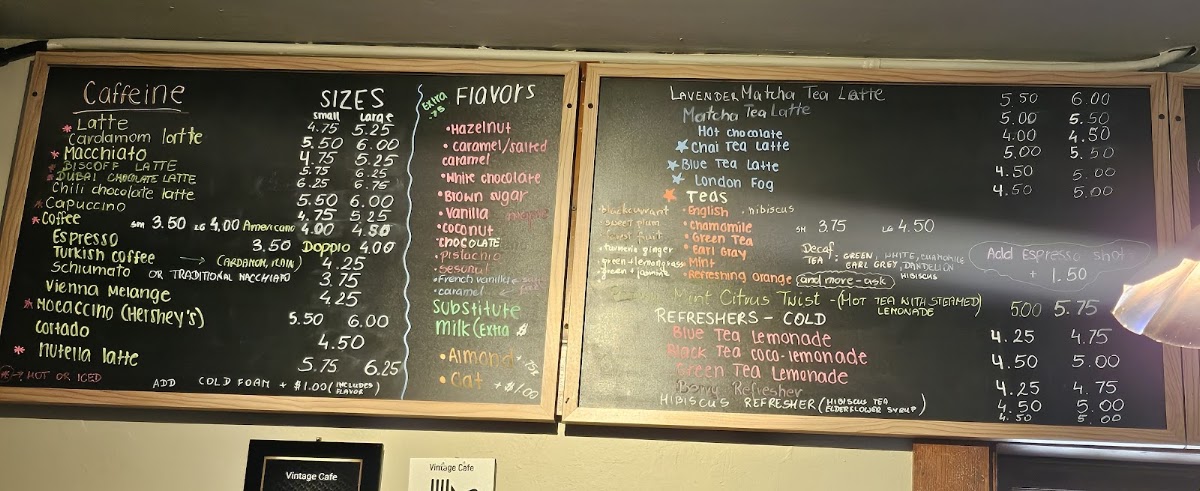 Caffeine
SIZES
small large
* Latte 4.75 5.25
Cardamom latte 5.50 6.00
* Macchiato 4.75 5.25
* BISCOFF LATTE 5.75 6.25
* DUBAI CHOCOLATE LATTE 6.25 6.75
Chili chocolate latte 5.50 6.00
* Capuccino 4.75 5.25
* Coffee SM 3.50 LG 4.00 Americano 4.00 4.50
Espresso 3.50 Doppio 4.00
Turkish coffee → (CARDAMON, PLAIN) 4.25
Schiumato OR TRADITIONAL MACCHIATO 3.75
Vienna Melange 4.25
* Mocaccino (Hershey's) 5.50 6.00
cortado 4.50
* Nutella latte 5.75 6.25
* → HOT OR ICED
ADD COLD FOAM + $1.00 (INCLUDES FLAVOR)
Extra .75
Flavors
• Hazelnut
• caramel/salted
caramel
• White chocolate
• Brown sugar
• Vanilla
• coconut
• CHOCOLATE
• pistachio
• seasonal
• French vanilla
• caramel
Substitute
Milk (Extra $
• Almond + 75¢
• Oat + $1.00
LAVENDER Matcha Tea Latte 5.50 6.00
Matcha Tea Latte 5.00 5.50
Hot chocolate 4.00 4.50
Chai Tea Latte 5.00 5.50
Blue Tea Latte 4.50 5.00
London Fog 4.50 5.00
TEAS SM 3.75 LG 4.50
• blackcurrant
• sweet plum
• turmeric ginger
• green + lemongrass
• green + jasmine
• English • hibiscus
• Chamomile
• Green Tea
• Earl Gray
• Mint
• Refreshing orange (and more - ask)
Decaf TEA : GREEN, WHITE, CHAMOMILE
EARL GREY, DANDELION
HIBISCUS
Add Espresso shot
+ 1.50
Mint Citrus Twist - (HOT TEA WITH STEAMED LEMONADE) 5.00 5.75
REFRESHERS - COLD
Blue Tea Lemonade 4.25 4.75
Black Tea coco-lemonade 4.50 5.00
Green Tea Lemonade 4.25 4.75
Berry Refresher 4.50 5.00
HIBISCUS REFRESHER (HIBISCUS TEA ELDERFLOWER SYRUP) 4.50 5.00
Vintage Cafe
Vintage Cafe